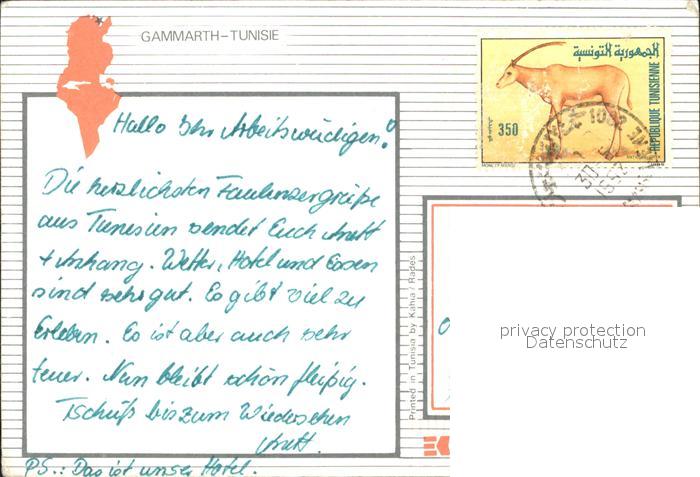 GAMMARTH-TUNISIE
الجمهورية التونسية
350
REPUBLIQUE TUNISIENNE
Hallo Ihr Arbeitswütigen!
Die herzlichsten Faulenzergrüße
aus Tunesien sendet Euch Anett
+ Anhang. Wetter, Hotel und Essen
sind sehr gut. Es gibt viel zu
Erleben. Es ist aber auch sehr
teuer. Nun bleibt schön fleißig.
Tschüß bis zum Wiedersehen
Anett.
PS.: Das ist unser Hotel.
Printed in Tunisia by Kahia / Rades
privacy protection
Datenschutz